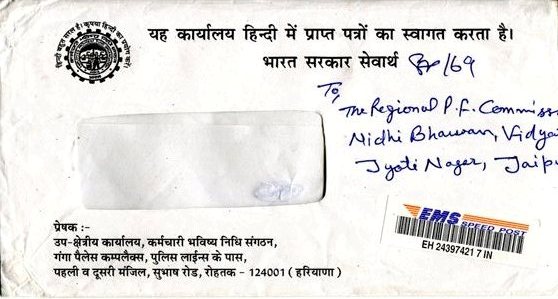 यह कार्यालय हिन्दी में प्राप्त पत्रों का स्वागत करता है।
भारत सरकार सेवार्थ
/69
To,
The Regional P.F. Commiss
Nidhi Bhawan, Vidya
Jyoti Nagar, Jaip
EMS SPEED POST
EH 24397421 7 IN
प्रेषक :-
उप-क्षेत्रीय कार्यालय, कर्मचारी भविष्य निधि संगठन,
गंगा पैलेस काम्पलैक्स, पुलिस लाईन्स के पास,
पहली व दूसरी मंजिल, सुभाष रोड, रोहतक - 124001 ( हरियाणा )